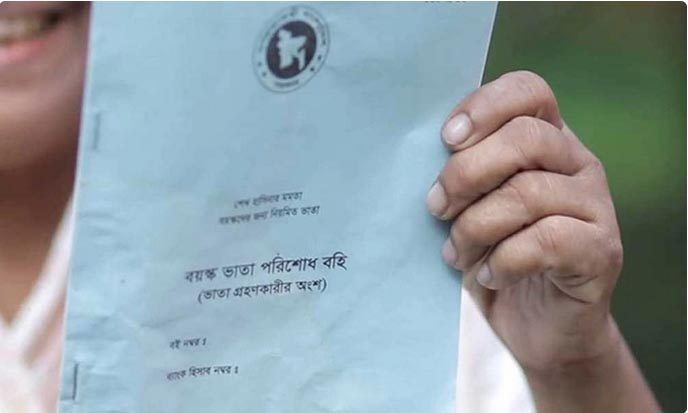 শেখ হাসিনার মমতা
বয়স্কদের জন্য নিয়মিত ভাতা
বয়স্ক ভাতা পরিশোধ বহি
(ভাতা গ্রহণকারীর অংশ)
বই নম্বর :
ব্যাংক হিসাব নম্বর :